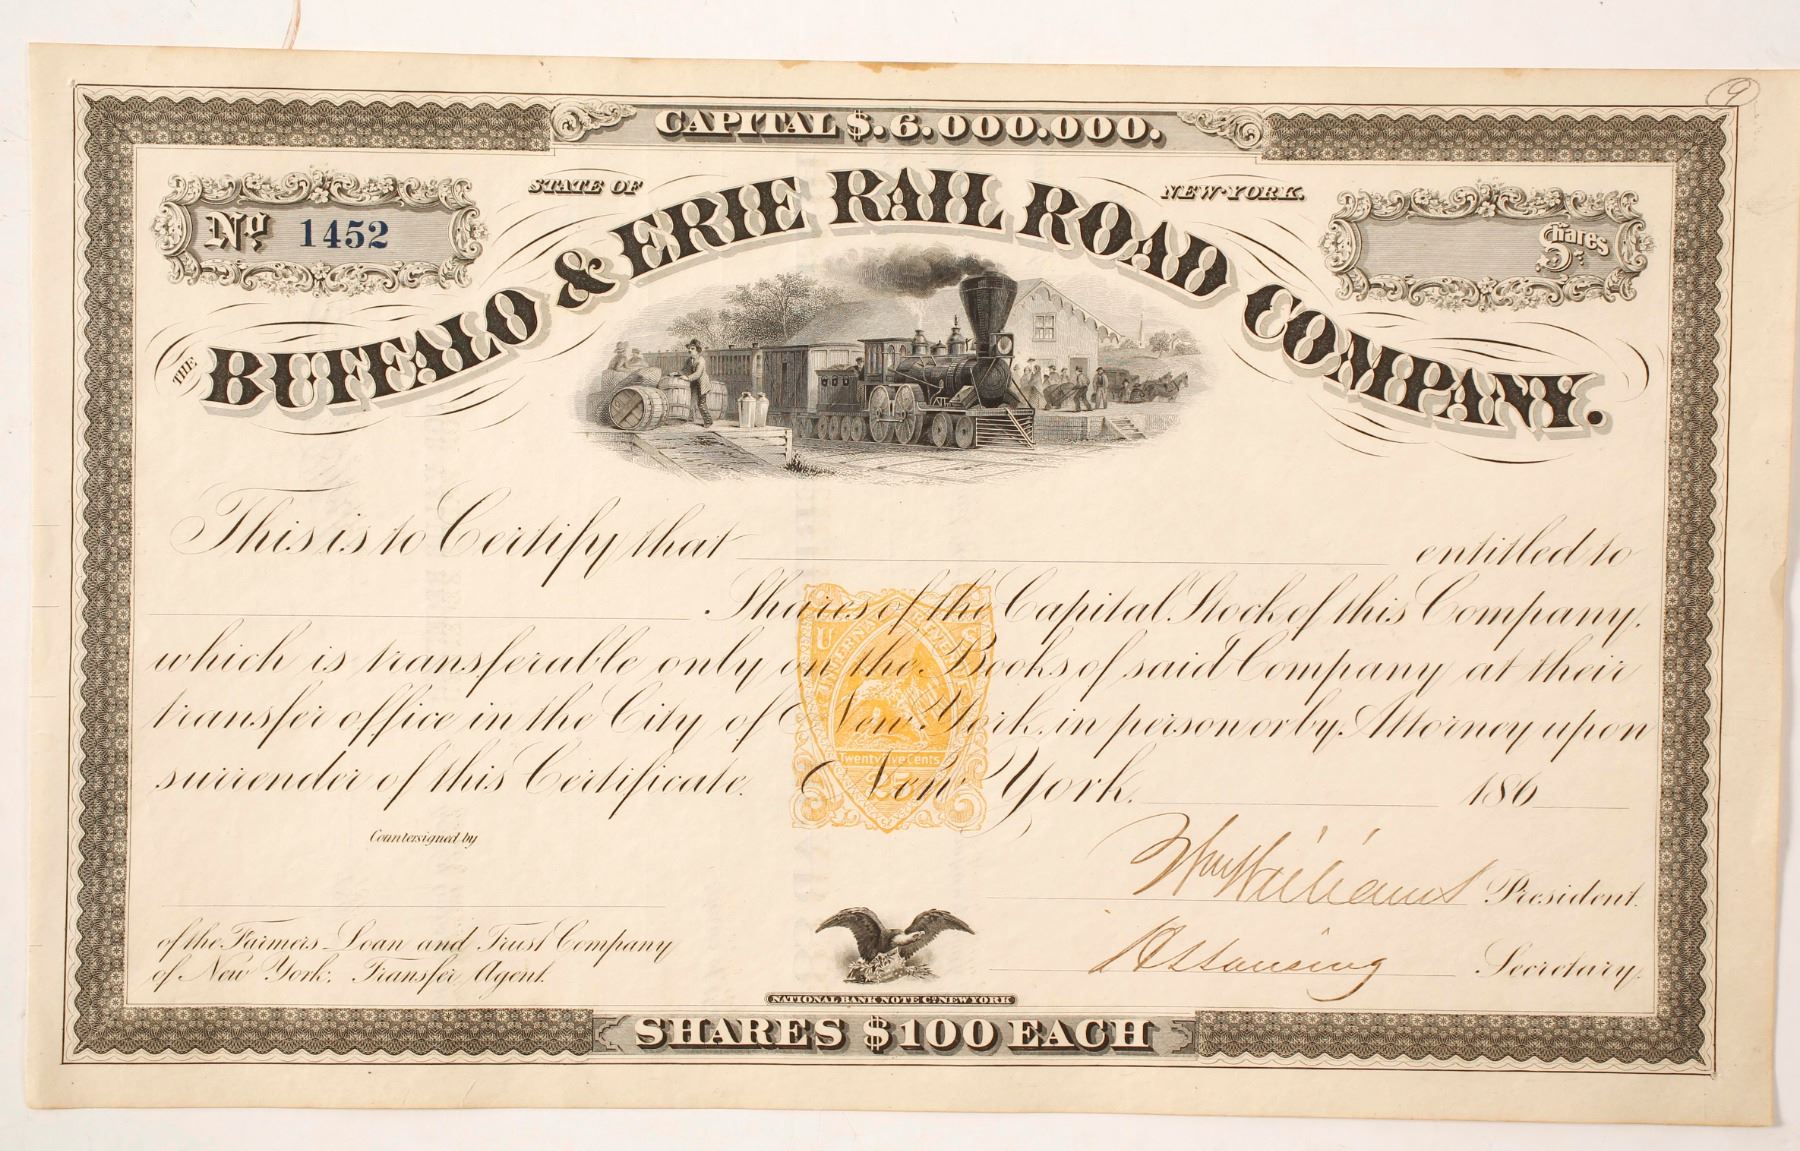 9
CAPITAL $.6.000.000.
STATE OF NEW-YORK.
No. 1452
Shares
THE BUFFALO & ERIE RAIL ROAD COMPANY.
This is to Certify that entitled to
Shares of the Capital Stock of this Company,
which is transferable only on the Books of said Company at their
transfer office in the City of New York, in person or by Attorney upon
surrender of this Certificate. New York. 186
U S
INTERNAL REVENUE
Twenty five Cents
25
Countersigned by
Wm Williams President.
of the Farmers Loan and Trust Company
of New York. Transfer Agent.
Secretary.
NATIONAL BANK NOTE Co. NEW YORK
SHARES $100 EACH